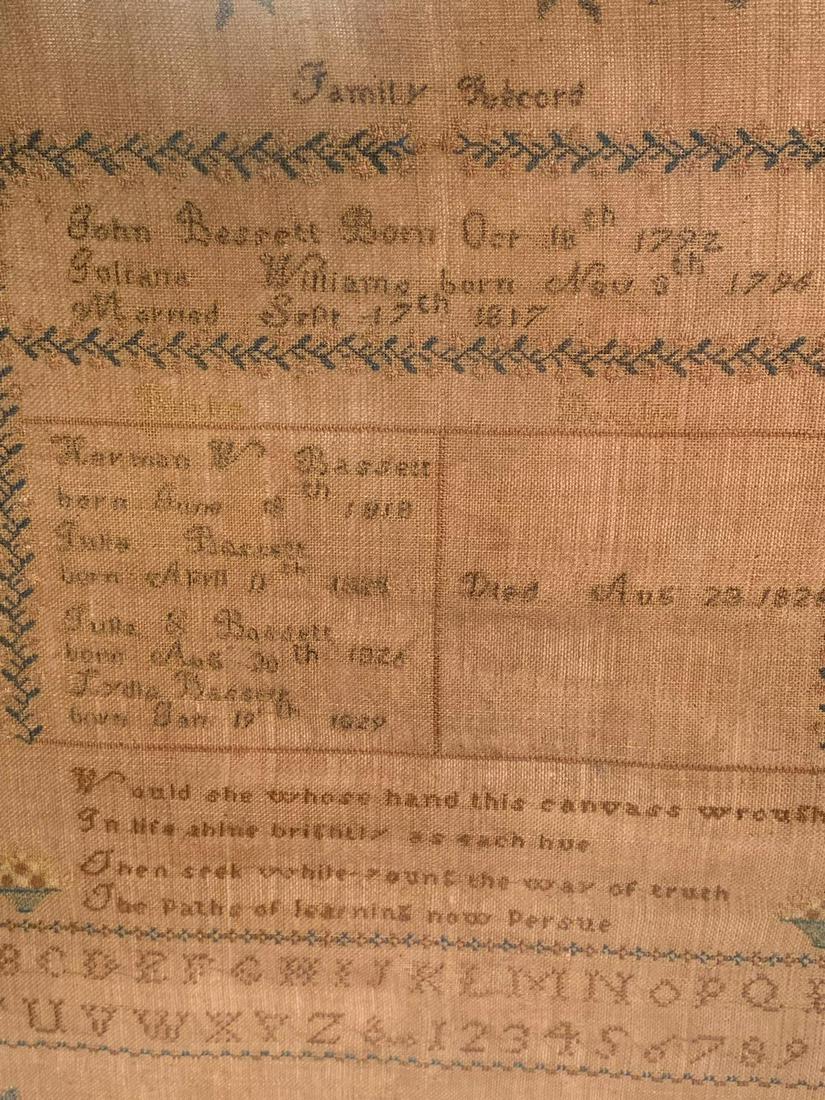 Family Record
John Bassett Born Oct 18th 1792
Williams born Nov 8th 1796
Married Sept 17th 1817
Births Deaths
Harman W Bassett
born June 18th 1818
Julia Bassett
born April 11th Died Aug 29
Julia S Bassett
born Aug 30th 1826
Lydia Bassett
born Jan 19th 1829
Would she whose hand this canvass wrough
In life shine brightly as each hue
Then seek while young the way of truth
The paths of learning now persue
B C D E F G H I J K L M N O P Q
U V W X Y Z & 1 2 3 4 5 6 7 8 9